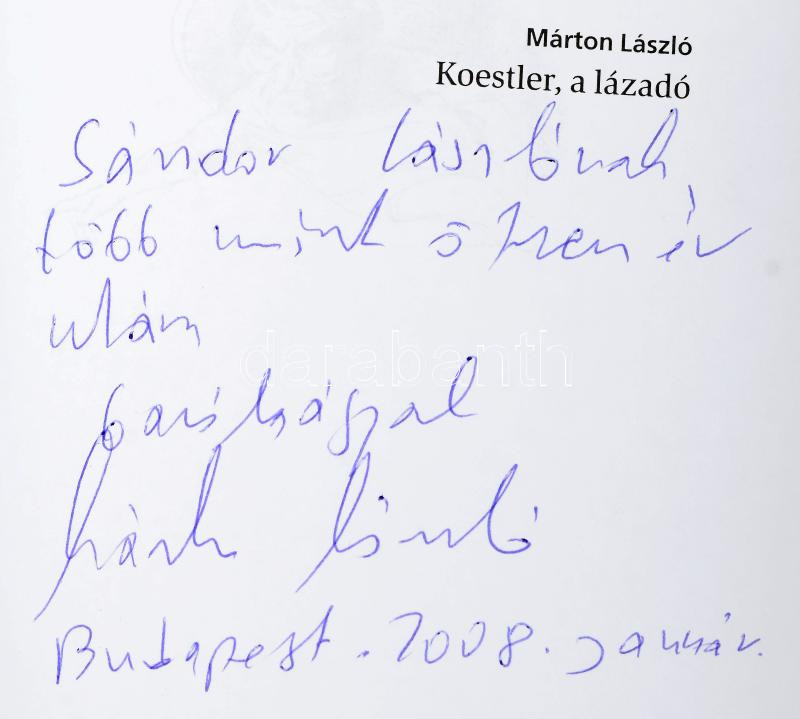 Márton László
Koestler, a lázadó
Sándor Lászlónak,
több mint ötven év
után
barátsággal
Márton László
Budapest. 2008. január.
darabanth